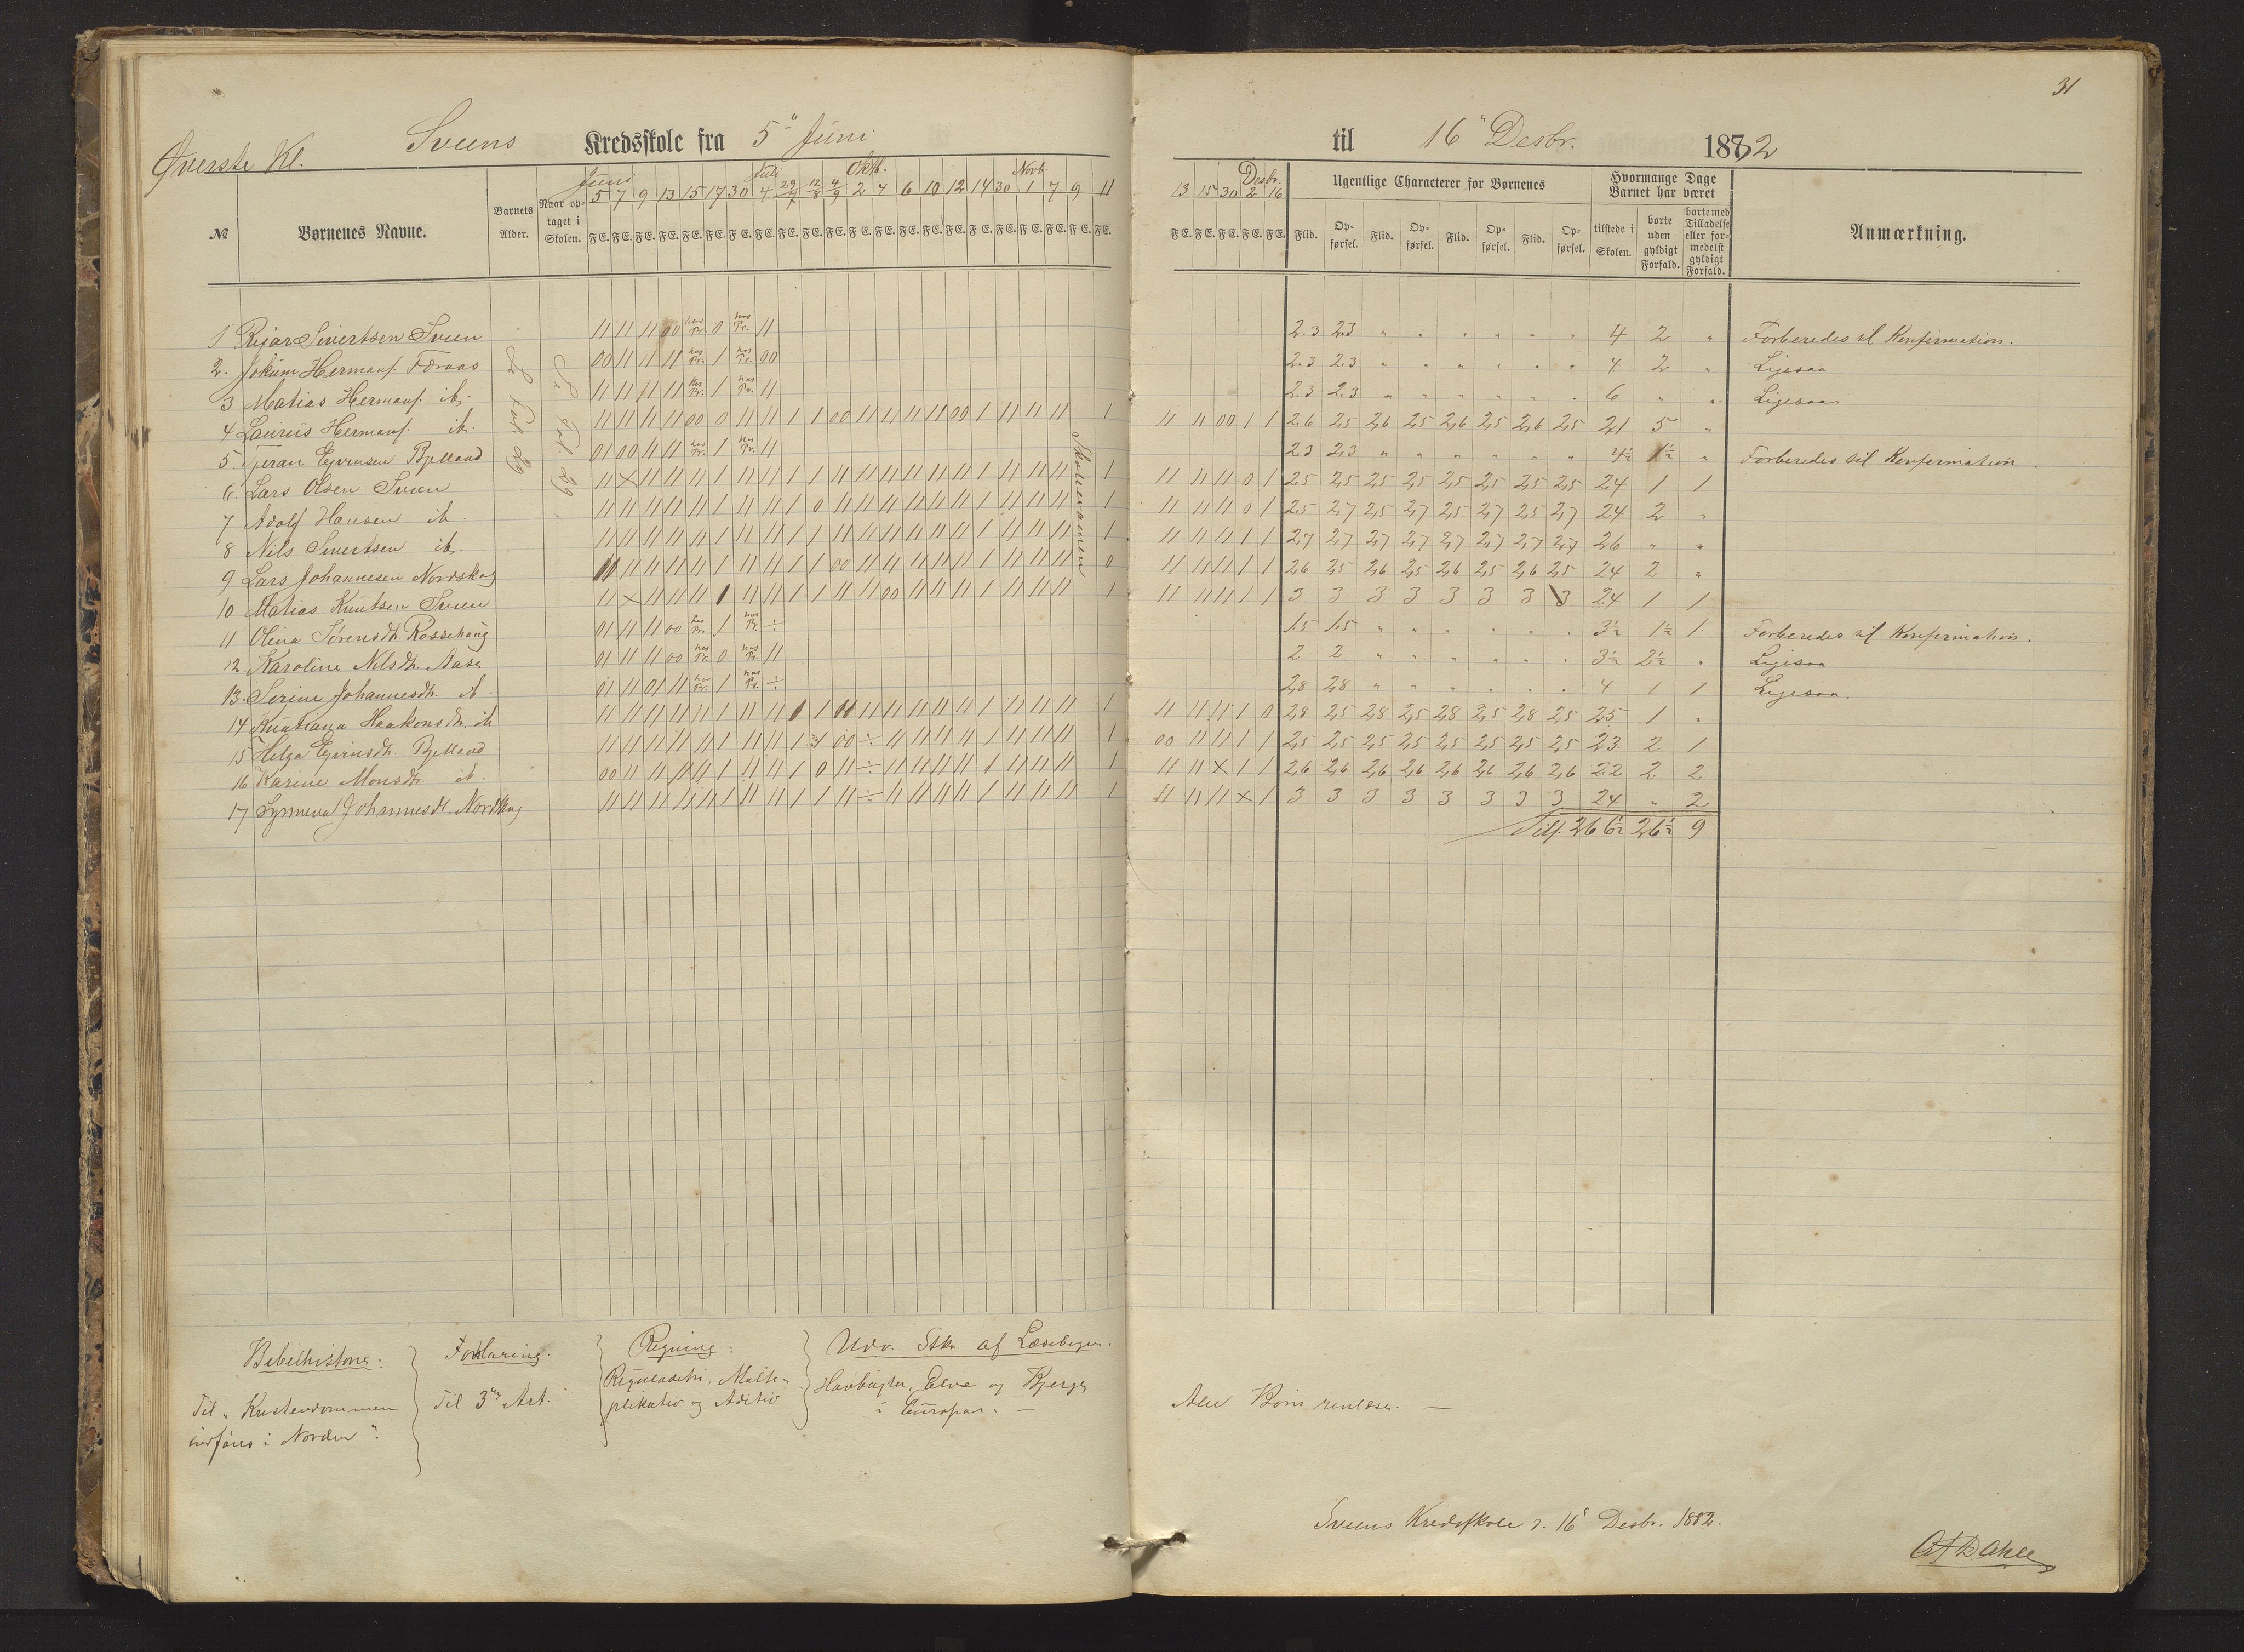 31
Øverste Kl. Sveens Kredsskole fra 5" Juni til 16" Desbr. 1882
Juni Juli Oktb. Novb. Desbr.
5 7 9 13 15 17 30 4 29/7 12/8 4/9 2 4 6 10 12 14 30 1 7 9 11 13 15 30 2 16
№ Børnenes Navne. Barnets Alder. Naar optaget i Skolen. F E. Ugentlige Characterer for Børnenes Flid. Opførsel. Flid. Opførsel. Flid. Opførsel. Flid. Opførsel. Hvormange Dage Barnet har været tilstede i Skolen. borte uden gyldigt Forfald. borte med Tilladelse eller formedelst gyldigt Forfald. Anmærkning.
Se Fol. 29
Se Fol. 29.
1 Sivertsen Sveen 2.3 2.3 " " " " " " 4 2 " Forberedes til Konfirmation.
2. Jokum Hermans. Foraas 2.3 2.3 " " " " " " 4 2 " Ligesaa
3 Matias Hermans. ib. 2.3 2.3 " " " " " " 6 " " Ligesaa
4 Laurus Hermans. ib. 2.6 2,5 2,6 2,5 2,6 2,5 2,6 2,5 21 5 "
5. Ejvinsen Bjelland 2.3 2.3 " " " " " " 4½ 1½ " Forberedes til Konfirmation.
6. Lars Olsen Sveen 2.5 2,5 2,5 2,5 2,5 2,5 2,5 2,5 24 1 1
7 Adolf Hansen ib. 2.5 2,7 2,5 2,7 2,5 2,7 2,5 2,7 24 2 "
8 Nils Sivertsen ib. 2,7 2,7 2,7 2,7 2,7 2,7 2,7 2,7 26 " "
9 Lars Johannesen Nordskog 2,6 2,5 2,6 2,5 2,6 2,5 2,6 2,5 24 2 "
10 Matias Knutsen Sveen 3 3 3 3 3 3 3 3 24 1 1
11 Olina Sørensdt. Rossehaug 1.5 1.5 " " " " " " 3½ 1½ 1 Forberedes til Konfirmation.
12. Karoline Nilsdt. Aase 2 2 " " " " " " 3½ 2½ " Ligesaa
13. Serine Johannesdt. ib. 2,8 2,8 " " " " " " 4 1 1 Ligesaa.
14 Kristiana Haakonsdt. ib 2,8 2,5 2,8 2,5 2,8 2,5 2,8 2,5 25 1 "
15 Helga Ejvinsdt. Bjelland 2,5 2,5 2,5 2,5 2,5 2,5 2,5 2,5 23 2 1
16 Karine Monsdt. ib. 2,6 2,6 2,6 2,6 2,6 2,6 2,6 2,6 22 2 2
17 Synneva Johannesdt. Nordskog 3 3 3 3 3 3 3 3 24 " 2
Skolemanuen
Tils. 266½ 26½ 9
Bibelhistorie: Forklaring. Regning: Udv. Stkr. af Læsebogen.
Til "Kristendommen indføres i Norden".
Til 3die Art.
Reguladetri, Multiplikativ og Aditiv
Havbugter, Elve og Bjerge
i Europa. —
Alle Børn renlæser. —
Sveens Kredsskole d. 16" Desbr. 1882.